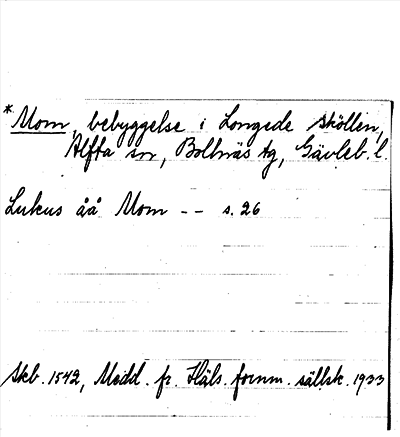 * Mom, bebyggelse i Longede sköllen,
Alfta sn, Bollnäs tg, Gävleb. l.
Lukus åå Mom -- s. 26
Skb. 1542, Medd. fr. Häls. fornm. sällsk. 1933